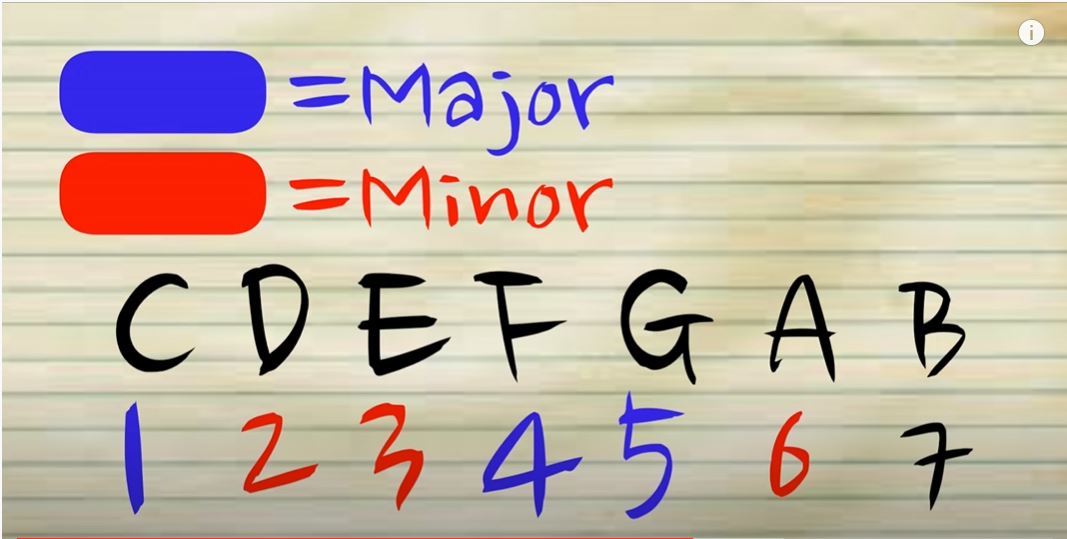 =Major
=Minor
C D E F G A B
1 2 3 4 5 6 7